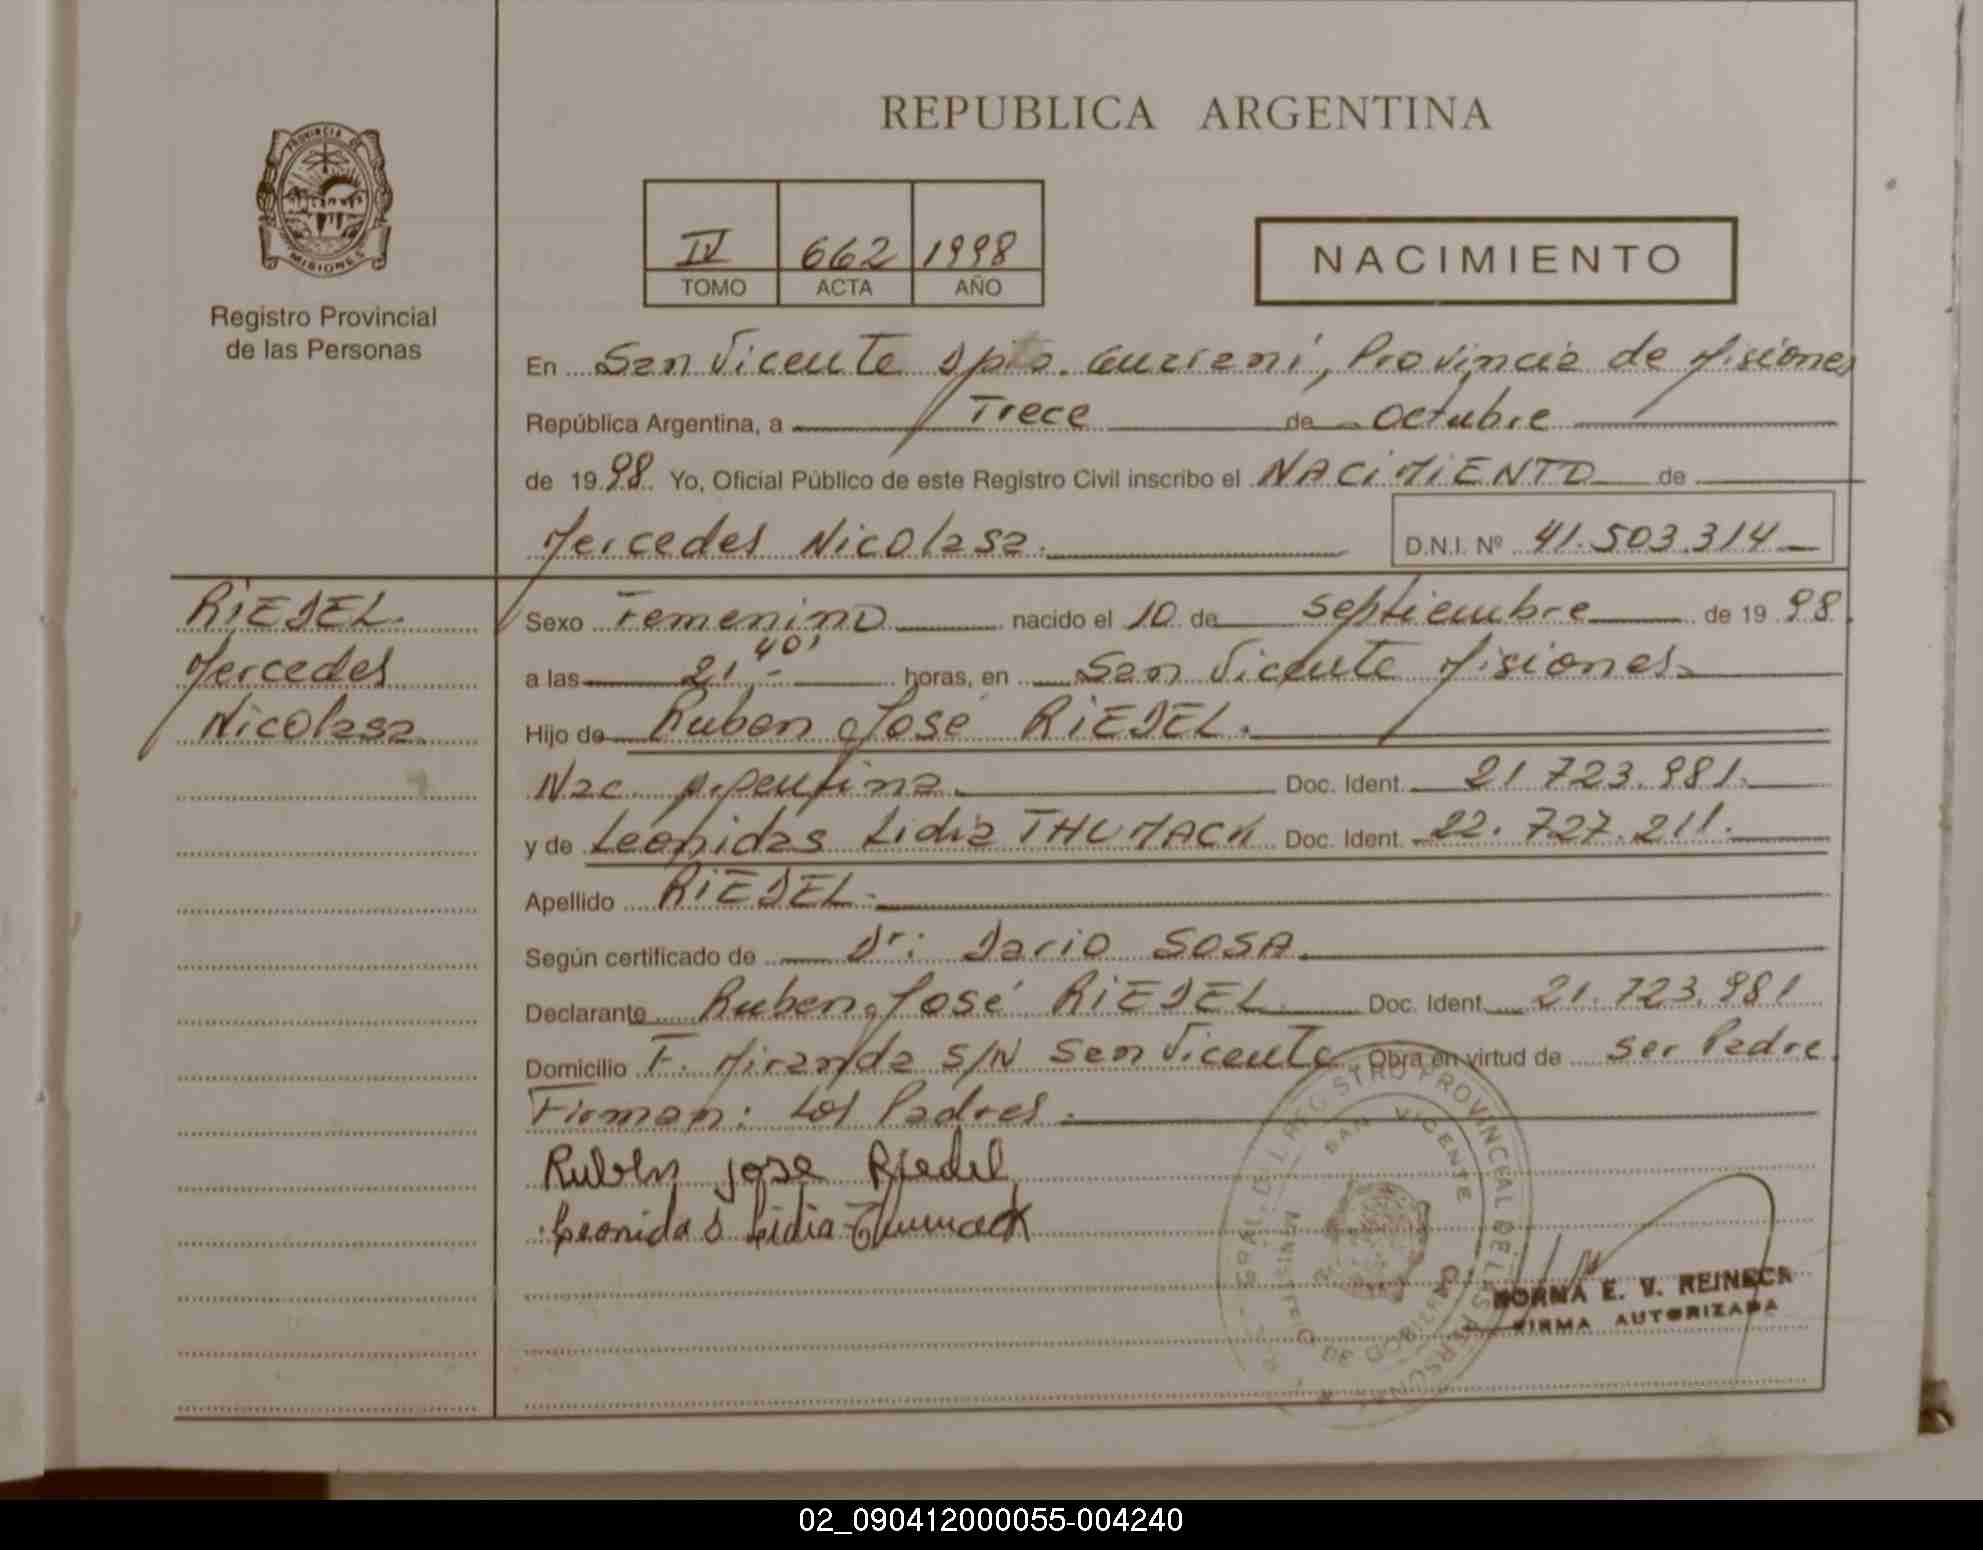 REPUBLICA ARGENTINA
PROVINCIA DE
MISIONES
Registro Provincial
de las Personas
IV 662 1998
TOMO ACTA AÑO
NACIMIENTO
En San Vicente Dpto. Guaraní, Provincia de Misiones
República Argentina, a Trece de Octubre
de 1998 Yo, Oficial Público de este Registro Civil inscribo el NACIMIENTO de
Mercedes Nicolasa. D.N.I. Nº 41.503.314
RIEDEL.
Mercedes
Nicolasa
Sexo Femenino nacido el 10 de septiembre de 1998.
a las 21,40' horas, en San Vicente Misiones
Hijo de Ruben José RIEDEL.
Nac. Argentina. Doc. Ident. 21.723.981.
y de Leonidas Lidia THUMACK Doc. Ident. 22.727.211.
Apellido RIEDEL.
Según certificado de Dr: Dario SOSA.
Declarante Ruben José RIEDEL. Doc. Ident. 21.723.981
Domicilio F. Miranda S/N San Vicente Obra en virtud de ser Padre.
Firman: Los Padres.
Ruben jose Riedel
Leonidas Lidia Thumack
SAN VICENTE
NORMA E. V. REINECK
FIRMA AUTORIZADA
02_090412000055-004240